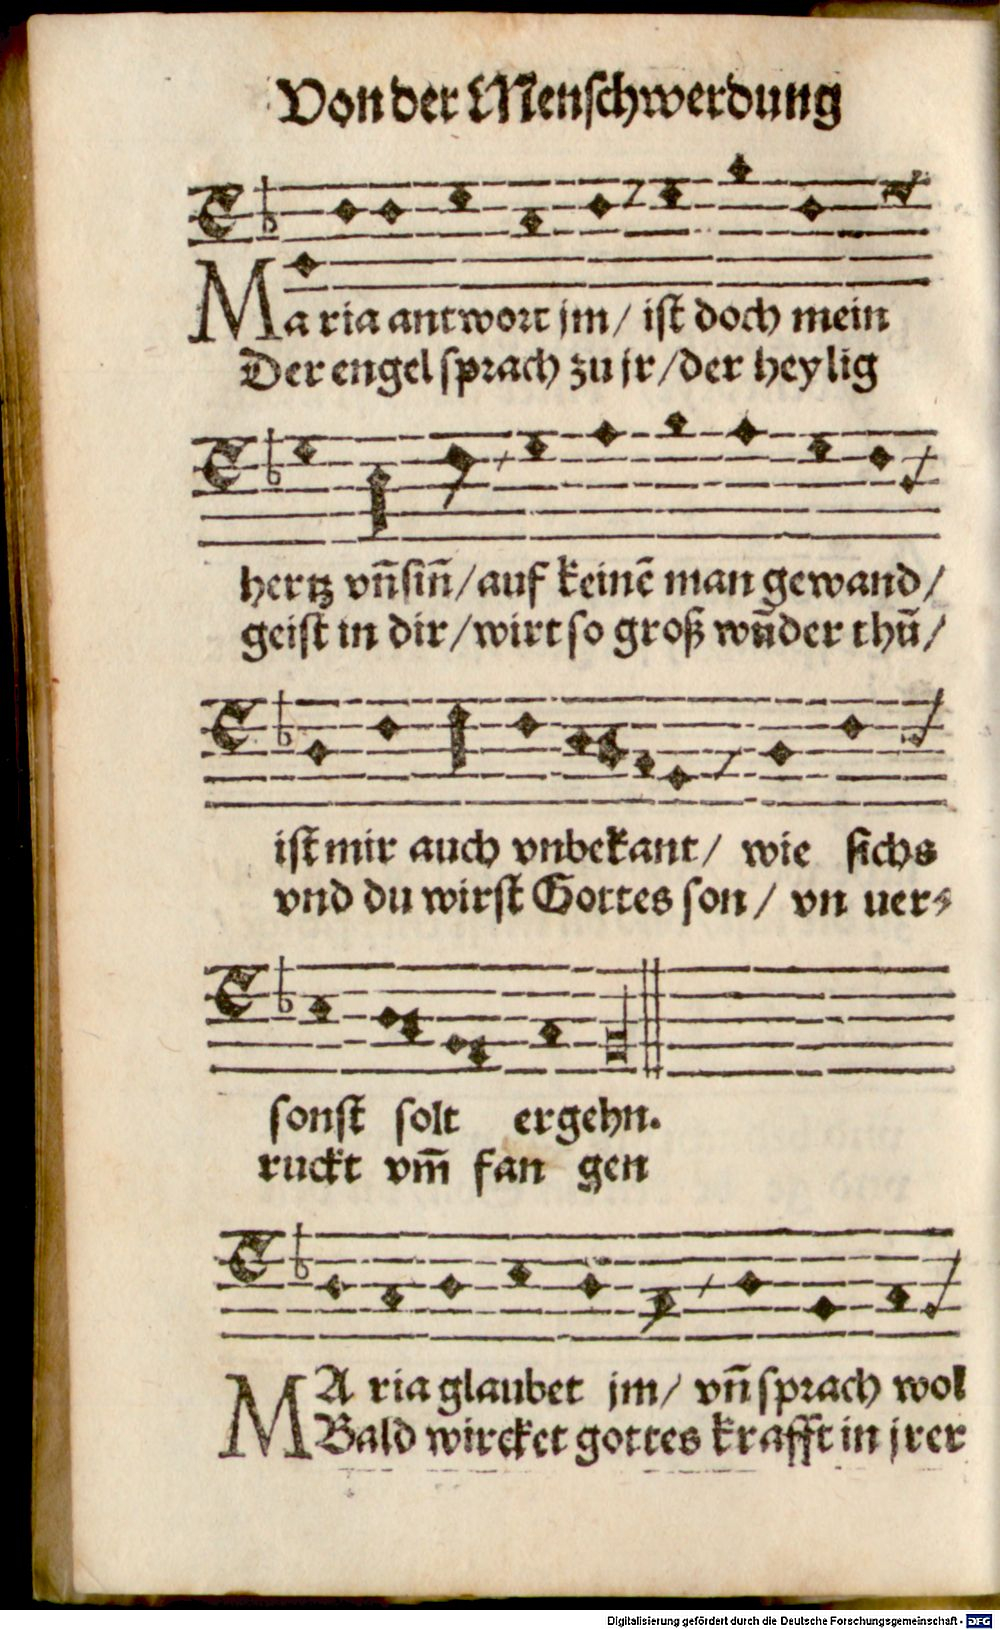 Von der Menschwerdung
Maria antwort jm/ ist doch mein
Der engel sprach zu jr/der heylig
hertz vñ siñ/auf keinẽ man gewand/
geist in dir/wirt so groß wũder thũ/
ist mir auch vnbekant/ wie sichs
vnd du wirst Gottes son/ vn uer⸗
sonst solt ergehn.
ruckt vm̃ fan gen
MA ria glaubet jm/ vñ sprach wol
Bald wircket gottes krafft in jrer
Digitalisierung gefördert durch die Deutsche Forschungsgemeinschaft - DFG